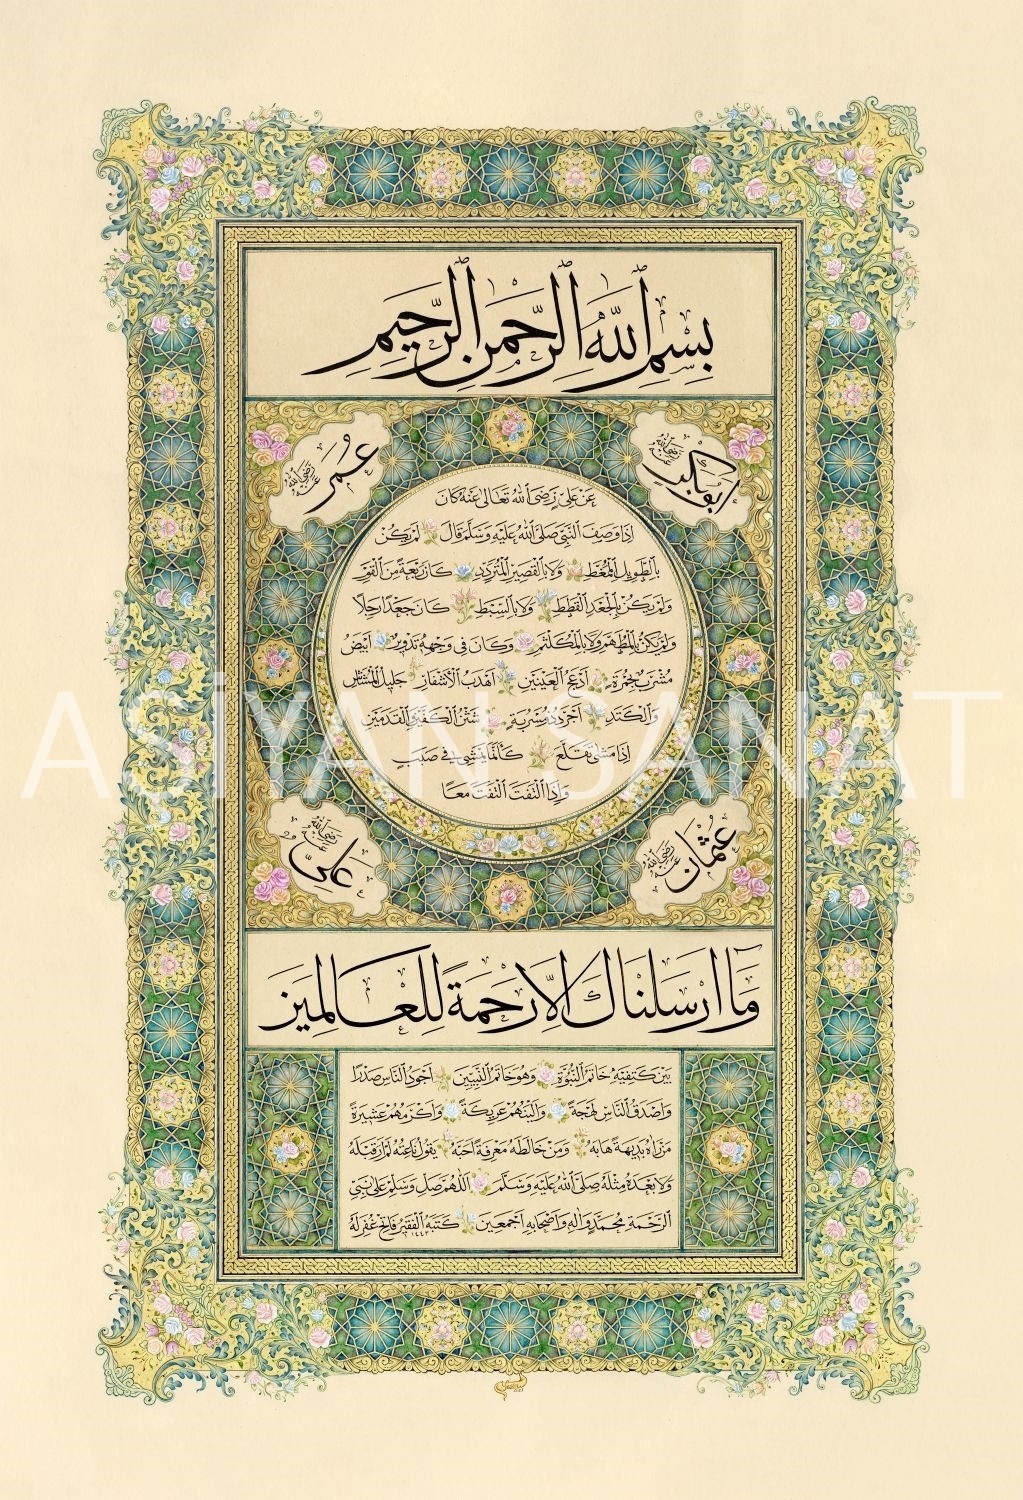 بِسْمِ اللّٰهِ الرَّحْمٰنِ الرَّحِيمِ
ابوبكر رضى الله عنه
عمر رضى الله عنه
عَنْ عَلِيٍّ رَضِيَ اللّٰهُ تَعَالٰى عَنْهُ كَانَ
اِذَا وَصَفَ النَّبِيَّ صَلَّى اللّٰهُ عَلَيْهِ وَسَلَّمَ قَالَ لَمْ يَكُنْ
بِالطَّوِيلِ الْمُمَّغِطِ وَلَا بِالْقَصِيرِ الْمُتَرَدِّدِ كَانَ رَبْعَةً مِنَ الْقَوْمِ
وَلَمْ يَكُنْ بِالْجَعْدِ الْقَطَطِ وَلَا بِالسَّبِطِ كَانَ جَعْدًا رَجِلًا
وَلَمْ يَكُنْ بِالْمُطَهَّمِ وَلَا بِالْمُكَلْثَمِ وَكَانَ فِي وَجْهِهِ تَدْوِيرٌ اَبْيَضُ
مُشْرَبٌ بِحُمْرَةٍ اَدْعَجُ الْعَيْنَيْنِ اَهْدَبُ الْاَشْفَارِ جَلِيلُ الْمُشَاشِ
وَالْكَتَدِ اَجْرَدُ ذُو مَسْرُبَةٍ شَثْنُ الْكَفَّيْنِ وَالْقَدَمَيْنِ
اِذَا مَشٰى تَقَلَّعَ كَاَنَّمَا يَمْشِي فِي صَبَبٍ
وَاِذَا الْتَفَتَ الْتَفَتَ مَعًا
ASİYAN SANAT
عثمان رضى الله عنه
على رضى الله عنه
وَمَا اَرْسَلْنَاكَ اِلَّا رَحْمَةً لِلْعَالَمِينَ
بَيْنَ كَتِفَيْهِ خَاتَمُ النُّبُوَّةِ وَهُوَ خَاتَمُ النَّبِيِّينَ اَجْوَدُ النَّاسِ صَدْرًا
وَاَصْدَقُ النَّاسِ لَهْجَةً وَاَلْيَنُهُمْ عَرِيكَةً وَاَكْرَمُهُمْ عَشِيرَةً
مَنْ رَاٰهُ بَدِيهَةً هَابَهُ وَمَنْ خَالَطَهُ مَعْرِفَةً اَحَبَّهُ يَقُولُ نَاعِتُهُ لَمْ اَرَ قَبْلَهُ
وَلَا بَعْدَهُ مِثْلَهُ صَلَّى اللّٰهُ عَلَيْهِ وَسَلَّمَ اَللّٰهُمَّ صَلِّ وَسَلِّمْ عَلٰى نَبِيِّ
الرَّحْمَةِ مُحَمَّدٍ وَاٰلِهِ وَاَصْحَابِهِ اَجْمَعِينَ كَتَبَهُ الْفَقِيرُ فَاتِح غُفِرَ لَهُ